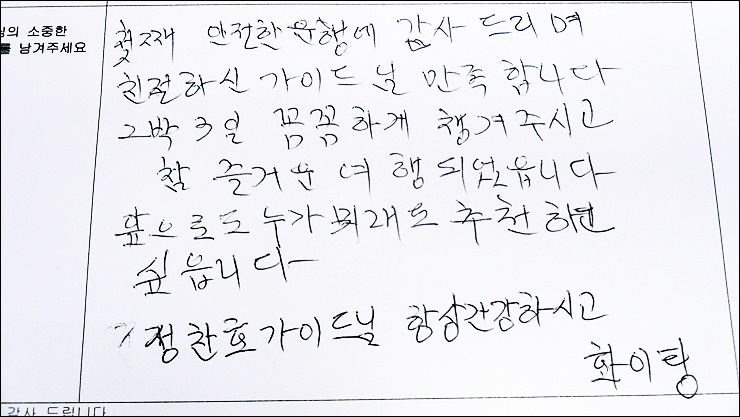 님의 소중한
를 남겨주세요
첫째 안전한 운행에 감사 드리며
친절하신 가이드님 만족 합니다
2박 3일 꼼꼼하게 챙겨주시고
참 즐거운 여행 되었읍니다
앞으로도 누가 뭐래도 추천 하면
싶읍니다
정찬호가이드님 항상간강하시고
화이팅
감사 드립니다